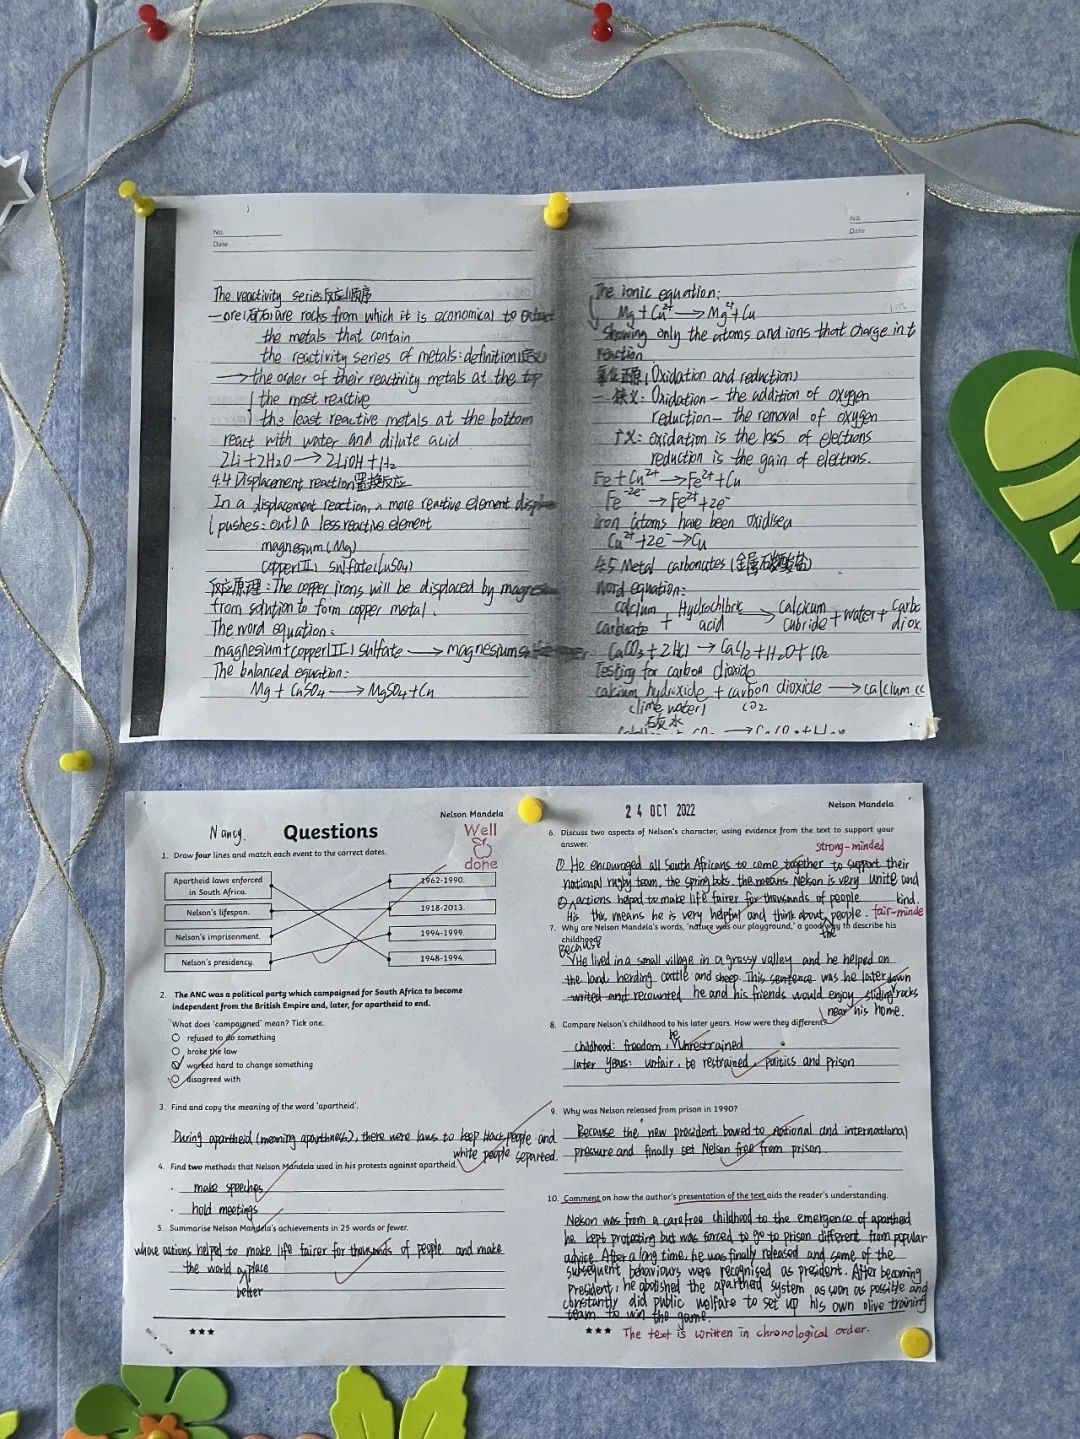 No.
Date
The reactivity series反应顺序
—ore(矿石)are rocks from which it is economical to extract
the metals that contain
the reactivity series of metals:definition(定义)
→the order of their reactivity metals at the top
the most reactive
the least reactive metals at the bottom
react with water and dilute acid
2Li+2H2O→2LiOH+H2
4.4 Displacement reaction置换反应
In a displacement reaction, a more reactive element displace
(pushes:out) a less reactive element
magnesium(Mg)
copper(II) sulfate(CuSO4)
反应原理:The copper irons will be displaced by
from solution to form copper metal.
The word equation:
magnesium+copper(II) sulfate→magnesium
The balanced equation:
Mg+CuSO4→MgSO4+Cu
No.
Date
The ionic equation:
Mg+Cu2+→Mg2++Cu
showing only the atoms and ions that charge in t
reaction
氧化还原(Oxidation and reduction)
一狭义:Oxidation—the addition of oxygen
reduction—the removal of oxygen
广义:oxidation is the loss of electrons
reduction is the gain of electrons.
Fe+Cu2+→Fe2++Cu
Fe -2e-→Fe2++2e-
iron atoms have been oxidised
Cu2++2e-→Cu
4.5 Metal carbonates(金属碳酸盐)
Word equation:
calcium Hydrochloric calcium carbo
carbonate + acid → + water + diox.
CaCO3+2HCl→CaCl2+H2O+CO2
Testing for carbon dioxide
calcium hydroxide+carbon dioxide→calcium cc
(lime water) CO2
石灰水
Nelson Mandela
Nancy.
Questions
Well
done
1. Draw four lines and match each event to the correct dates.
Apartheid laws enforced
in South Africa.
1962-1990.
Nelson's lifespan.
1918-2013.
Nelson's imprisonment.
1994-1999.
Nelson's presidency.
1948-1994.
2. The ANC was a political party which campaigned for South Africa to become
independent from the British Empire and, later, for apartheid to end.
What does 'campaigned' mean? Tick one.
refused to do something
broke the law
worked hard to change something
disagreed with
3. Find and copy the meaning of the word 'apartheid'.
During apartheid(meaning apartness), there were laws to keep black people and
white people separated.
4. Find two methods that Nelson Mandela used in his protests against apartheid.
make speeches
hold meetings
5. Summarise Nelson Mandela's achievements in 25 words or fewer.
whose actions helped to make life fairer for thousands of people and make
the world a place
better
★★★
24 OCT 2022
Nelson Mandela
6. Discuss two aspects of Nelson's character, using evidence from the text to support your
answer.
strong-minded
① He encouraged all South Africans to come together to support their
national rugby team, the springboks. the means Nelson is very unite and
② actions helped to make life fairer for thousands of people kind.
His this means he is very helpful and think about people. fair-minde
7. Why are Nelson Mandela's words, 'nature was our playground,' a good way to describe his
childhood?
the
Because
He lived in a small village in a grassy valley and he helped on
the land, herding cattle and sheep. This sentence was he later down
united and recounted he and his friends would enjoy sliding rocks
near his home.
8. Compare Nelson's childhood to his later years. How were they different?
be
childhood: freedom, unrestrained
later years: unfair, be restrained, politics and prison
9. Why was Nelson released from prison in 1990?
Because the new president bowed to national and international
pressure and finally set Nelson free from prison.
10. Comment on how the author's presentation of the text aids the reader's understanding.
Nelson was from a carefree childhood to the emergence of apartheid
he kept protesting but was forced to go to prison different from popular
advice. After a long time, he was finally released and some of the
subsequent behaviours were recognised as president. After becoming
President, he abolished the apartheid system as soon as possible and
constantly did public welfare to set up his own olive training
team to win the game.
★★★
The text is written in chronological order.